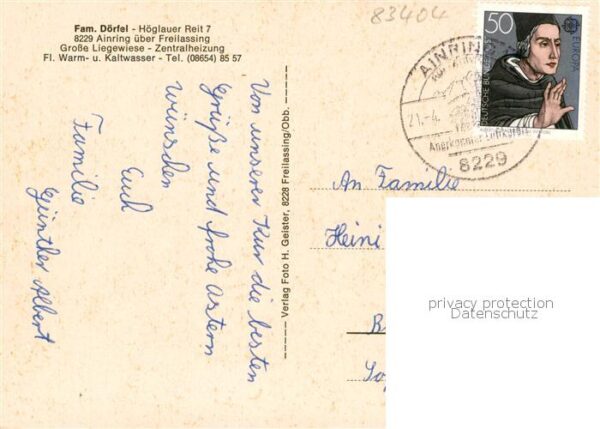 Fam. Dörfel - Höglauer Reit 7
8229 Ainring über Freilassing
Große Liegewiese - Zentralheizung
Fl. Warm- u. Kaltwasser - Tel. (08654) 85 57
83404
50
EUROPA
DEUTSCHE BUNDESPOST
AINRING
21.-4.
8229
Von unserer Kur die besten
Grüße und frohe Ostern
wünschen
Euch
Familie
Günther Albert
Verlag Foto H. Geister, 8228 Freilassing/Obb.
An Familie
Heini
privacy protection
Datenschutz